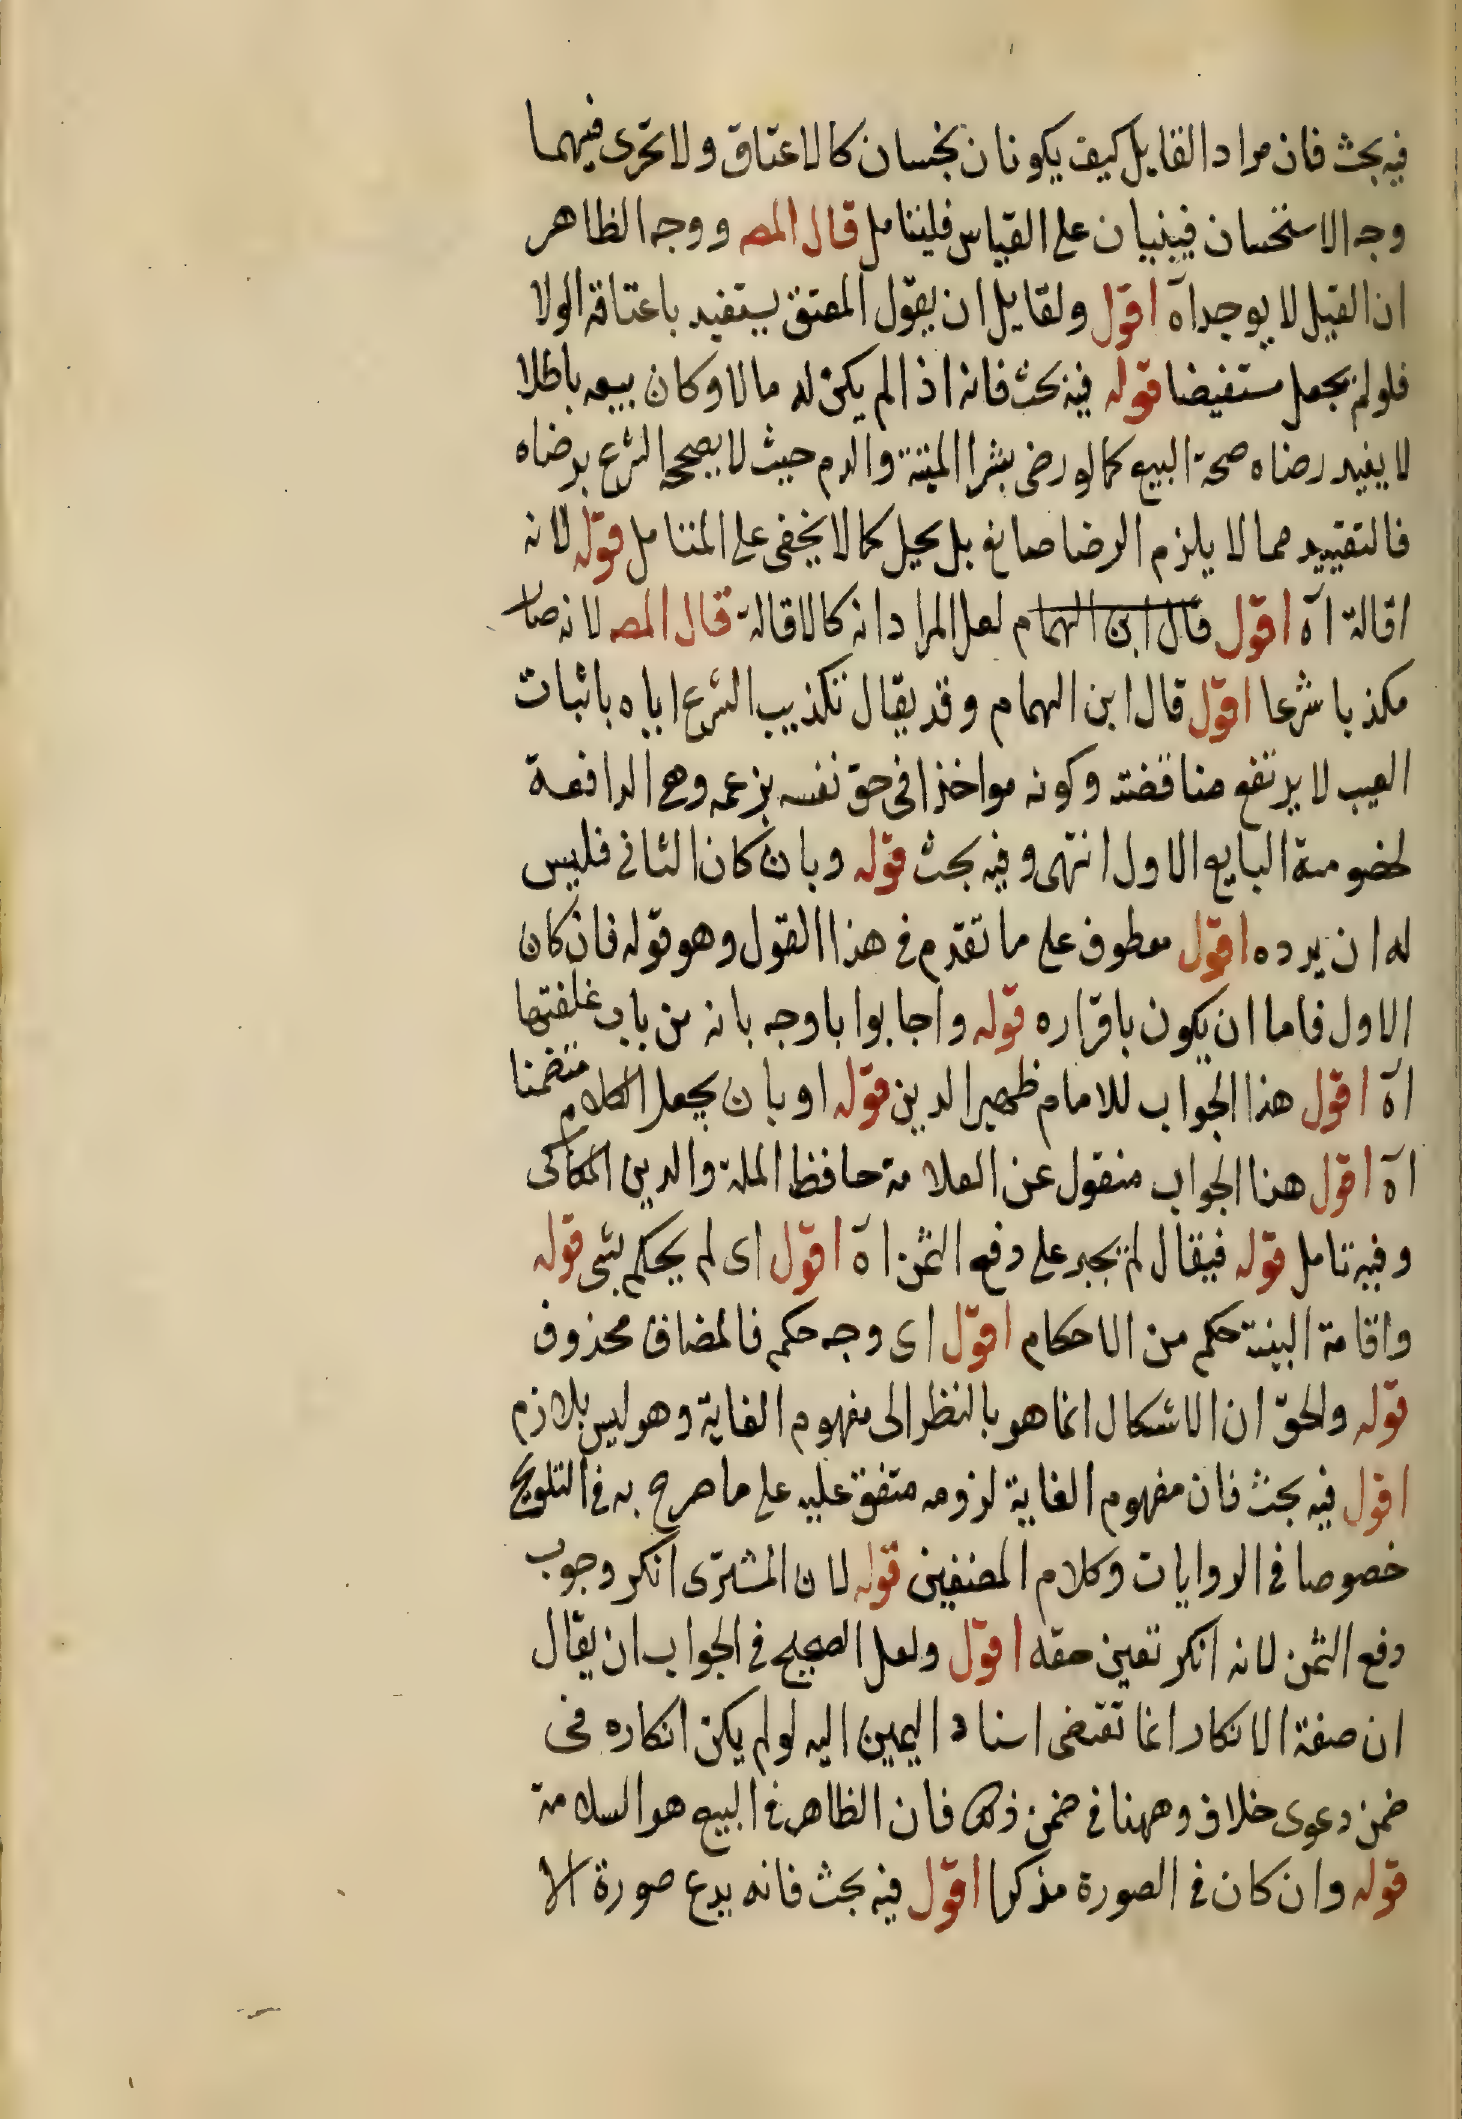 فيه بحث فان مراد القايل كيف يكونان بخسان كالاعتاق ولا تحرى فيهما
وجه الاستحسان فيبنيان على القياس فليتامل قال المص ووجه الظاهر
ان القيل لا يوجد اه اقول ولقايل ان يقول المعتق يستفيد باعتاقه الولا
فلو لم يجعل مستفيضا قوله فيه بحث فانه اذا لم يكن له مالا وكان بيعه باطلا
لا يفيد رضاه صحة البيع كما لو رضى بشرا الميتة والدم حيث لا يصححه الشرع برضاه
فالتقييد مما لا يلزم الرضا صايغ بل يحيل كما لا يخفى على المتامل قوله لانه
اقالة اه اقول قال ابن الهمام لعل المراد انه كالاقالة قال المص لانه صار
مكذبا شرعا اقول قال ابن الهمام وقد يقال تكذيب الشرع اياه باثبات
العيب لا يرتفع مناقضته وكونه مواخذا فى حق نفسه بزعمه وهى الدافعة
لخصومة البايع الاول انتهى وفيه بحث قوله وبان كان الثانى فليس
له ان يرده اقول معطوف على ما تقدم فى هذا القول وهو قوله فان كان
الاول فاما ان يكون باقراره قوله واجابوا باوجه بانه من باب علفتها
اه اقول هذا الجواب للامام ظهير الدين قوله او بان يجعل الكلام متضمنا
اه اقول هذا الجواب منقول عن العلامة حافظ الملة والدين الكاكى
وفيه تامل قوله فيقال لم يجبر على دفع الثمن اه اقول اى لم يحكم بشى قوله
واقامة البينة حكم من الاحكام اقول اى وجه حكم فالمضاف محذوف
قوله والحق ان الاشكال انما هو بالنظر الى مفهوم الغاية وهو ليس بلازم
اقول فيه بحث فان مفهوم الغاية لزومه متفق عليه على ما صرح به فى التلويح
خصوصا فى الروايات وكلام المصنفين قوله لان المشترى انكر وجوب
دفع الثمن لانه انكر تعين حقه اقول ولعل الصحيح فى الجواب ان يقال
ان صفة الانكار انما تقتضى اسناد اليمين اليه لو لم يكن انكاره فى
ضمن دعوى خلاف وههنا فى ضمن ذلك فان الظاهر فى البيع هو السلامة
قوله وان كان فى الصورة مذكرا اقول فيه بحث فانه يدع صورة الا